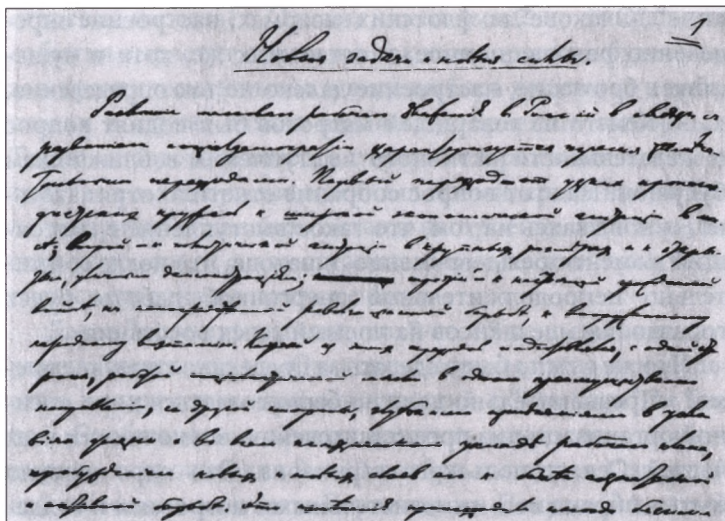 1
Новые задачи и новые силы.
Развитие массового рабочего движения в России в связи с
развитием социалдемократии характеризуется тремя замеча-
тельными переходами. Первый — переход от узких пропаган-
дистских кружков к широкой экономической агитации в мас-
се; второй — к политической агитации в крупных размерах и к
уличным демонстрациям; третий — к настоящей гражданской
войне, к непосредственной революционной борьбе, к вооруженному
народному восстанию. Каждый из этих переходов подготовлялся, с одной ст
роны, работой социалистической мысли в одном преимущественно
направлении, с другой стороны, глубокими изменениями в усло-
виях жизни и во всем психическом укладе рабочего класса,
пробуждением новых и новых слоев его к